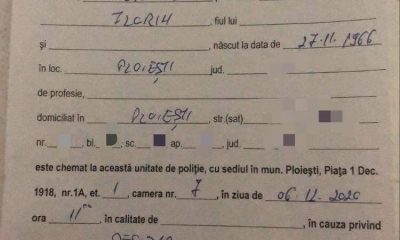 FLORIN, fiul lui
și, născut la data de 27.11.1966
în loc. PLOIEȘTI jud.
de profesie,
domiciliat în PLOIEȘTI, str.(sat)
nr. , bl. , sc. ap. , jud.
este chemat la această unitate de poliție, cu sediul în mun. Ploiești, Piața 1 Dec.
1918, nr.1A, et. 1, camera nr. 7, în ziua de 06.12.2020
ora 11⁰⁰ în calitate de, în cauza privind